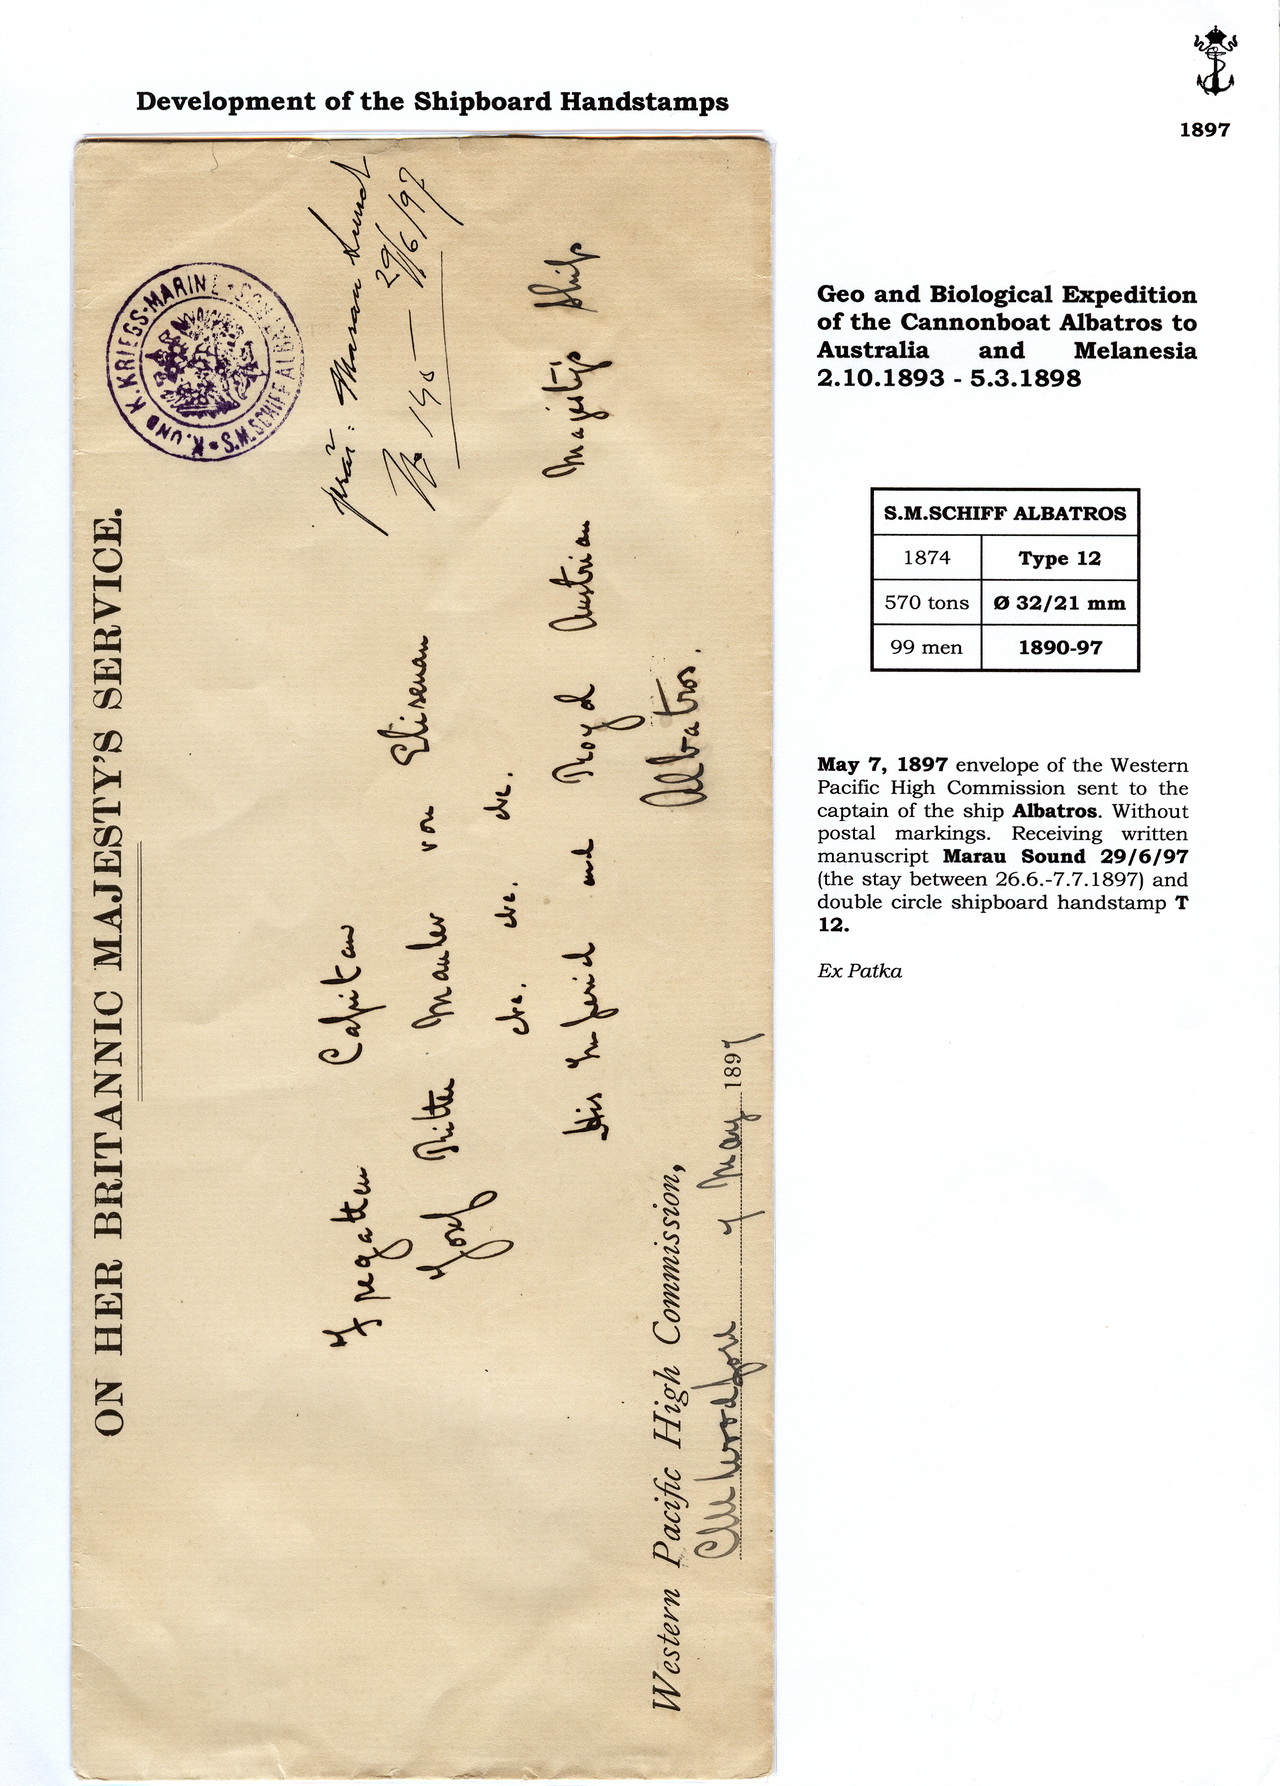 Development of the Shipboard Handstamps
1897
ON HER BRITANNIC MAJESTY'S SERVICE.
K. UND K. KRIEGS-MARINE · S.M. SCHIFF ALBATROS
präs: Marau Sund
No 140 — 29/6/97
Fregatten Capitan
Josef Ritter Mauler von Elisenau
etc. etc. etc.
His Imperial and Royal Austrian Majestys Ship
Albatros.
Western Pacific High Commission,
CMWoodford 7 May 1897
Geo and Biological Expedition
of the Cannonboat Albatros to
Australia and Melanesia
2.10.1893 - 5.3.1898
S.M.SCHIFF ALBATROS
1874 Type 12
570 tons Ø 32/21 mm
99 men 1890-97
May 7, 1897 envelope of the Western
Pacific High Commission sent to the
captain of the ship Albatros. Without
postal markings. Receiving written
manuscript Marau Sound 29/6/97
(the stay between 26.6.-7.7.1897) and
double circle shipboard handstamp T
12.
Ex Patka